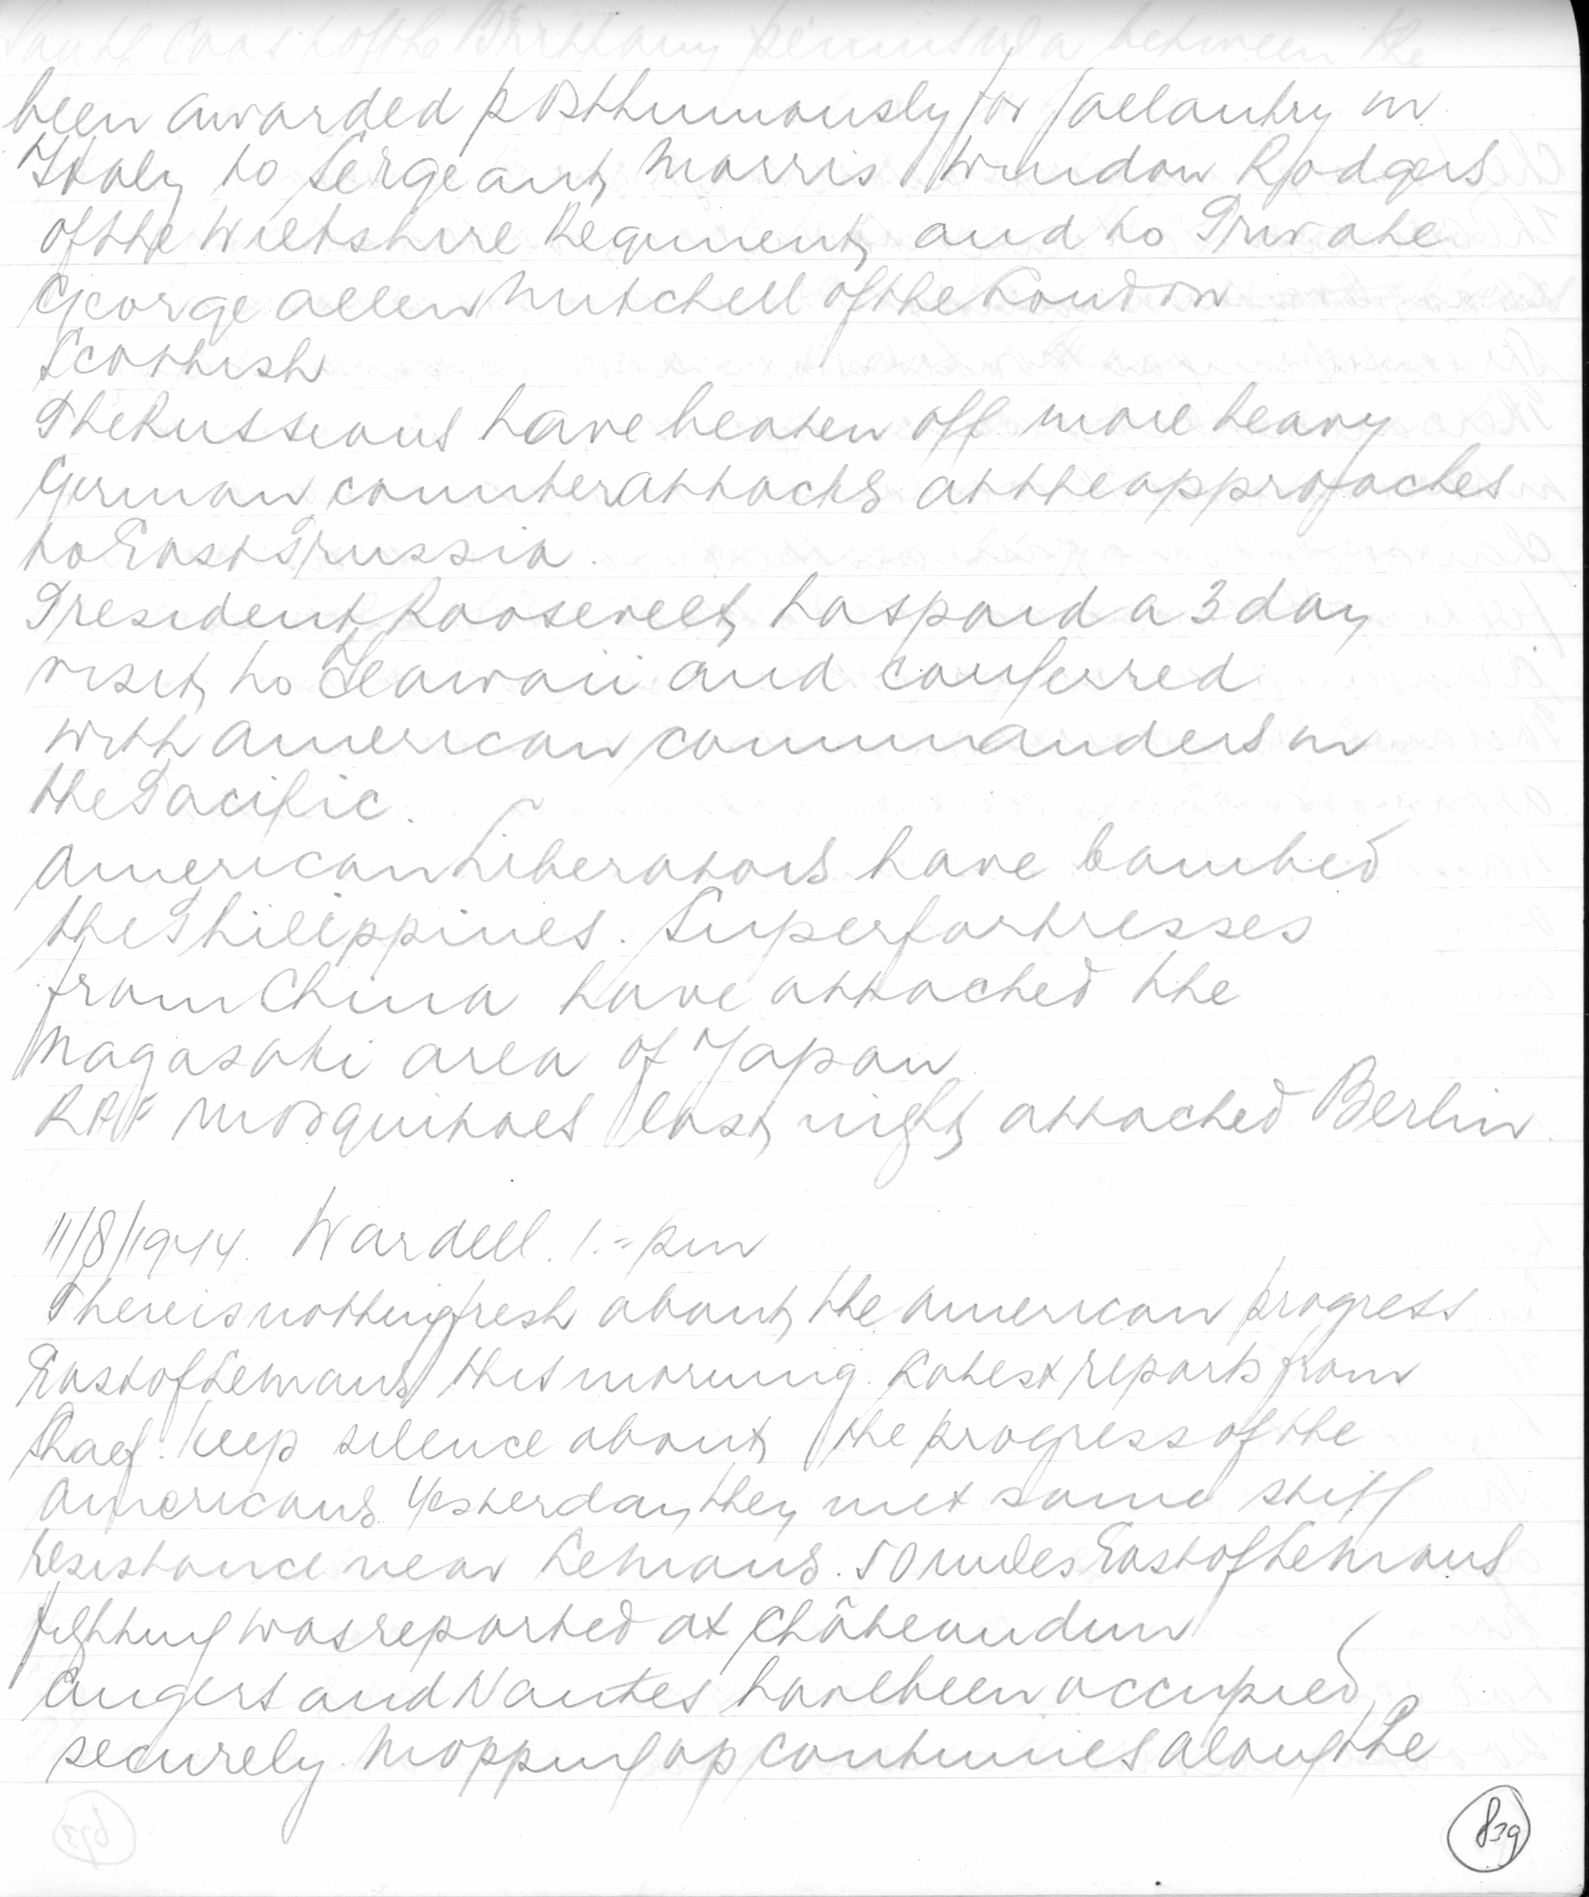 South coast of the Brittany peninsula between the
been awarded posthumously for gallantry in
Italy to Sergeant Morris Windon Rodgers
of the Wiltshire Regiment and to Private
George Allen Mitchell of the London
Scottish
The Russians have beaten off more heavy
German counterattacks at the approaches
to East Prussia.
President Roosevelt has paid a 3 day
visit to Hawaii and conferred
with American commanders in
the Pacific.
American Liberators have bombed
the Philippines. Superfortresses
from China have attacked the
Nagasaki area of Japan
RAF Mosquitoes last night attacked Berlin.
11/8/1944. Wardell. 1.= pm
There is nothing fresh about the American progress
East of Lemans this morning. Latest reports from
Shaef. keep silence about the progress of the
Americans. Yesterday they met some stiff
resistance near Lemans. 50 miles East of Lemans
fighting was reported at Châteaudun
Angers and Nantes have been occupied
securely. Mopping up continues along the
839